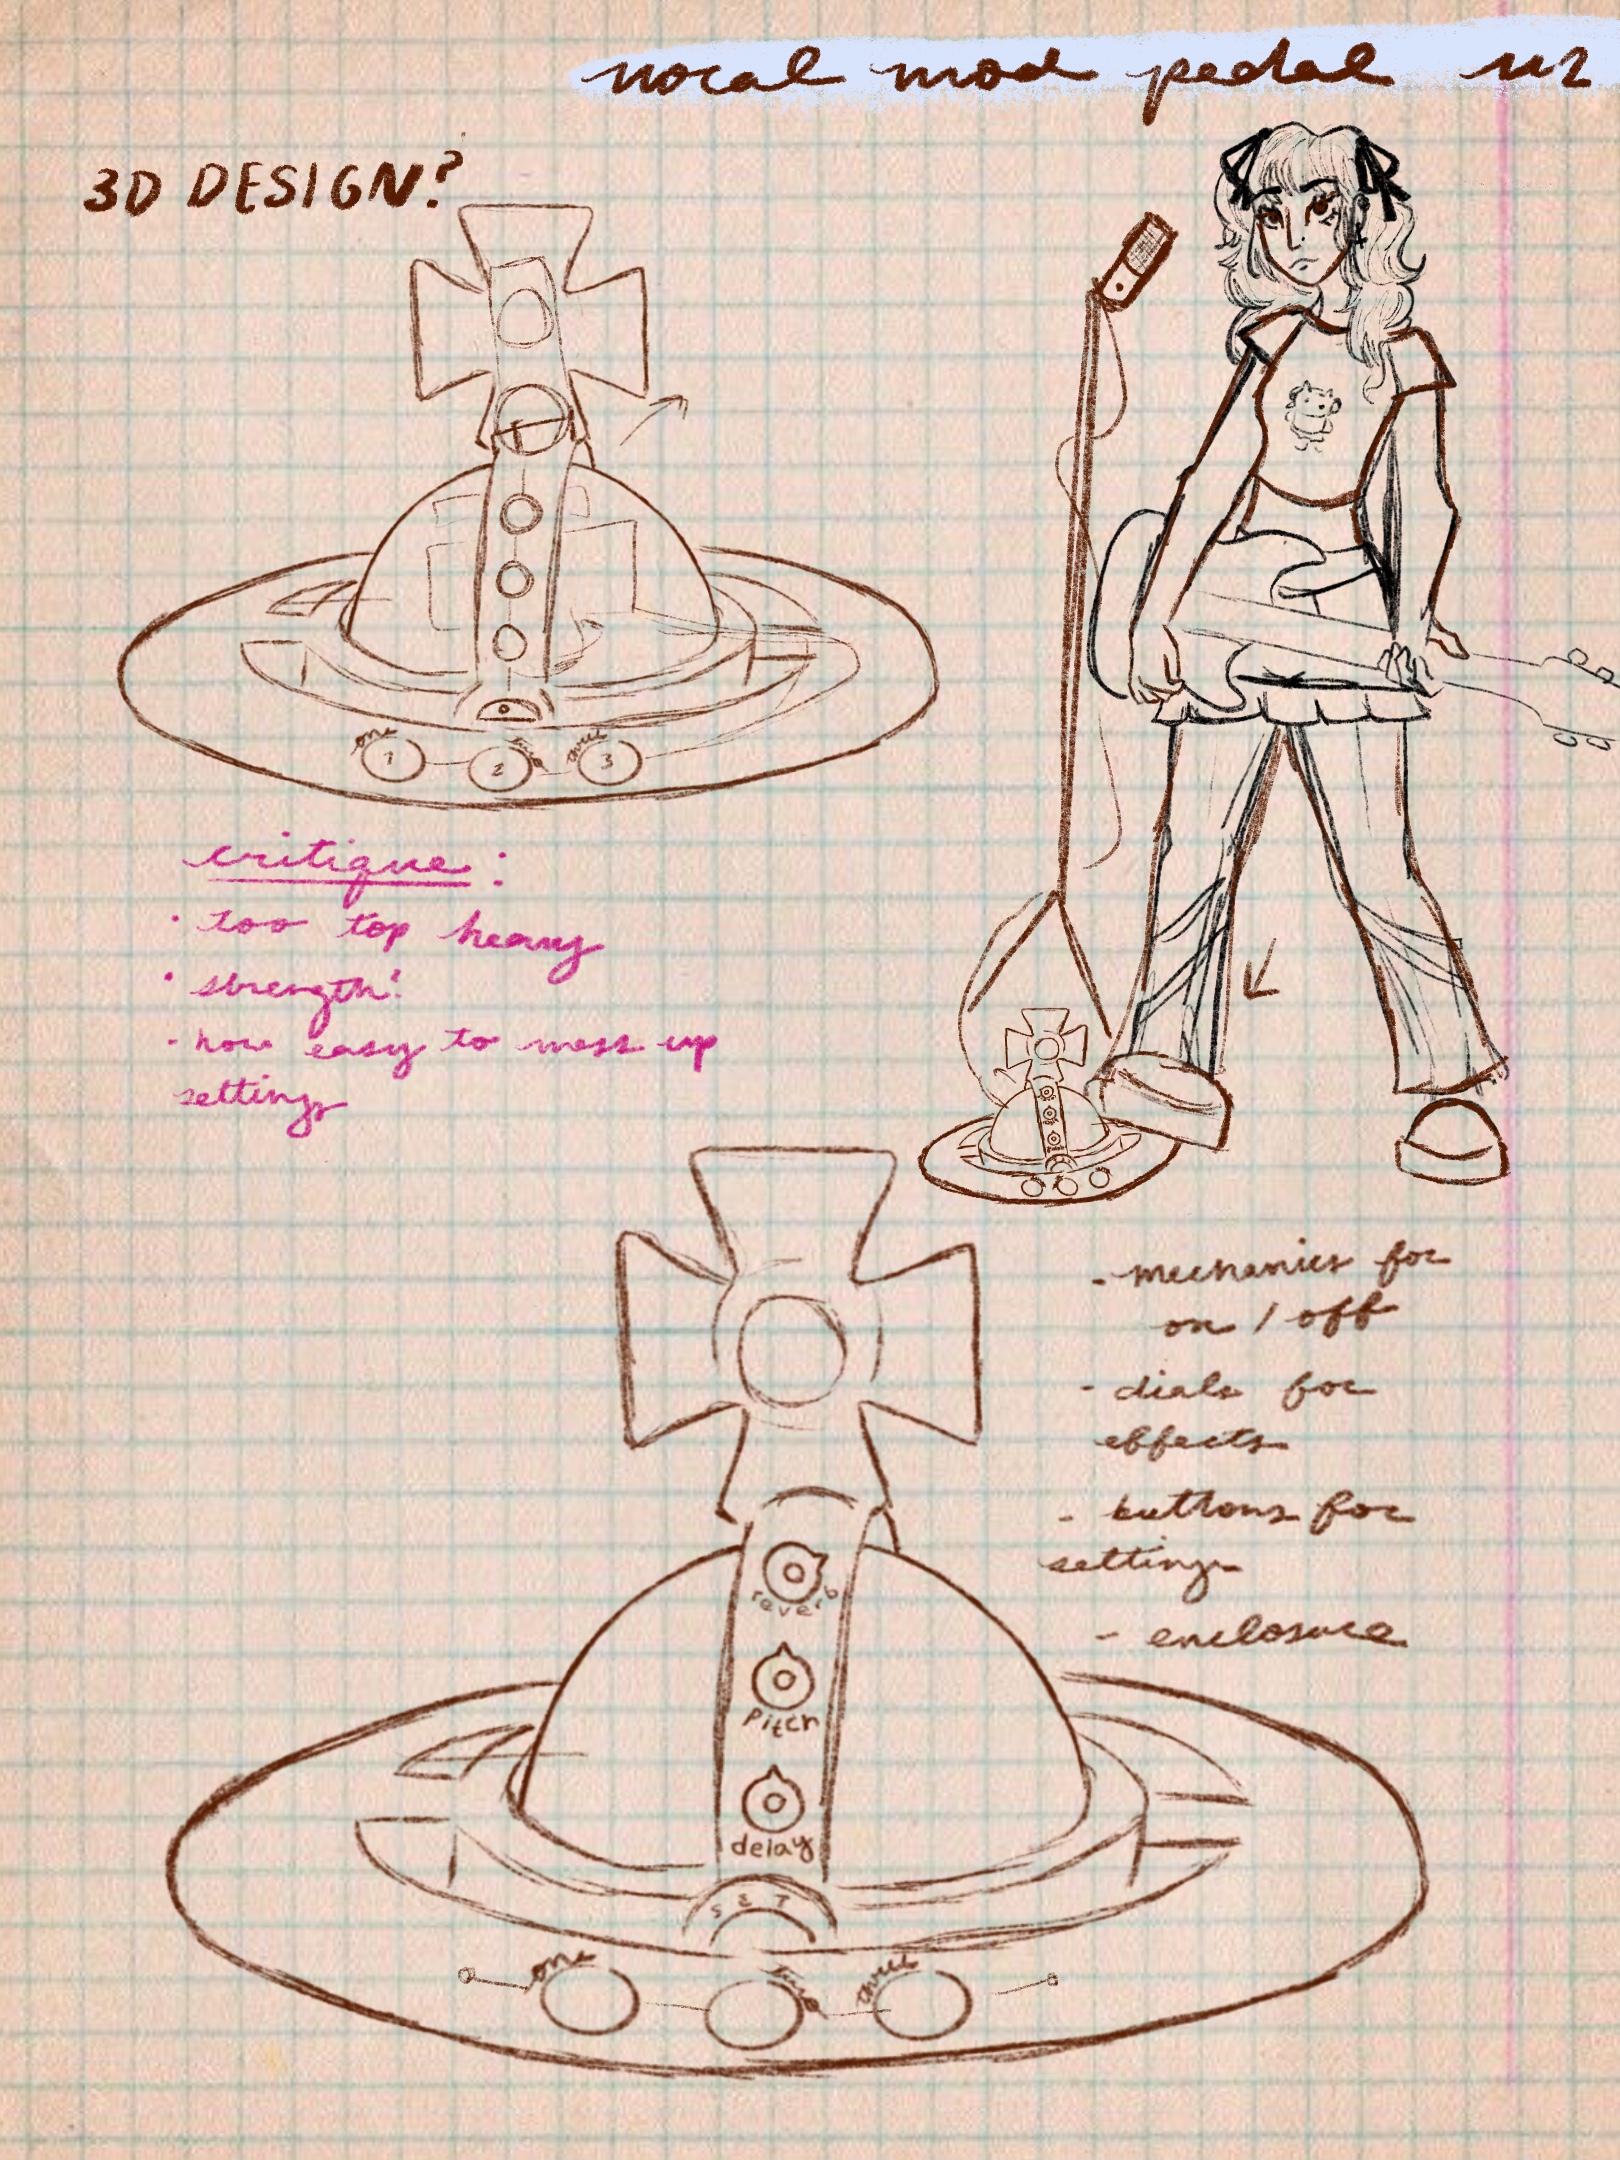 vocal mod pedal v2
3D DESIGN?
one
two
three
1
2
3
critique:
• too top heavy
• strength?
- how easy to mess up
settings
- mechanics for
on / off
- dials for
effects
- buttons for
settings
- enclosure
reverb
Pitch
delay
SET
one
two
three